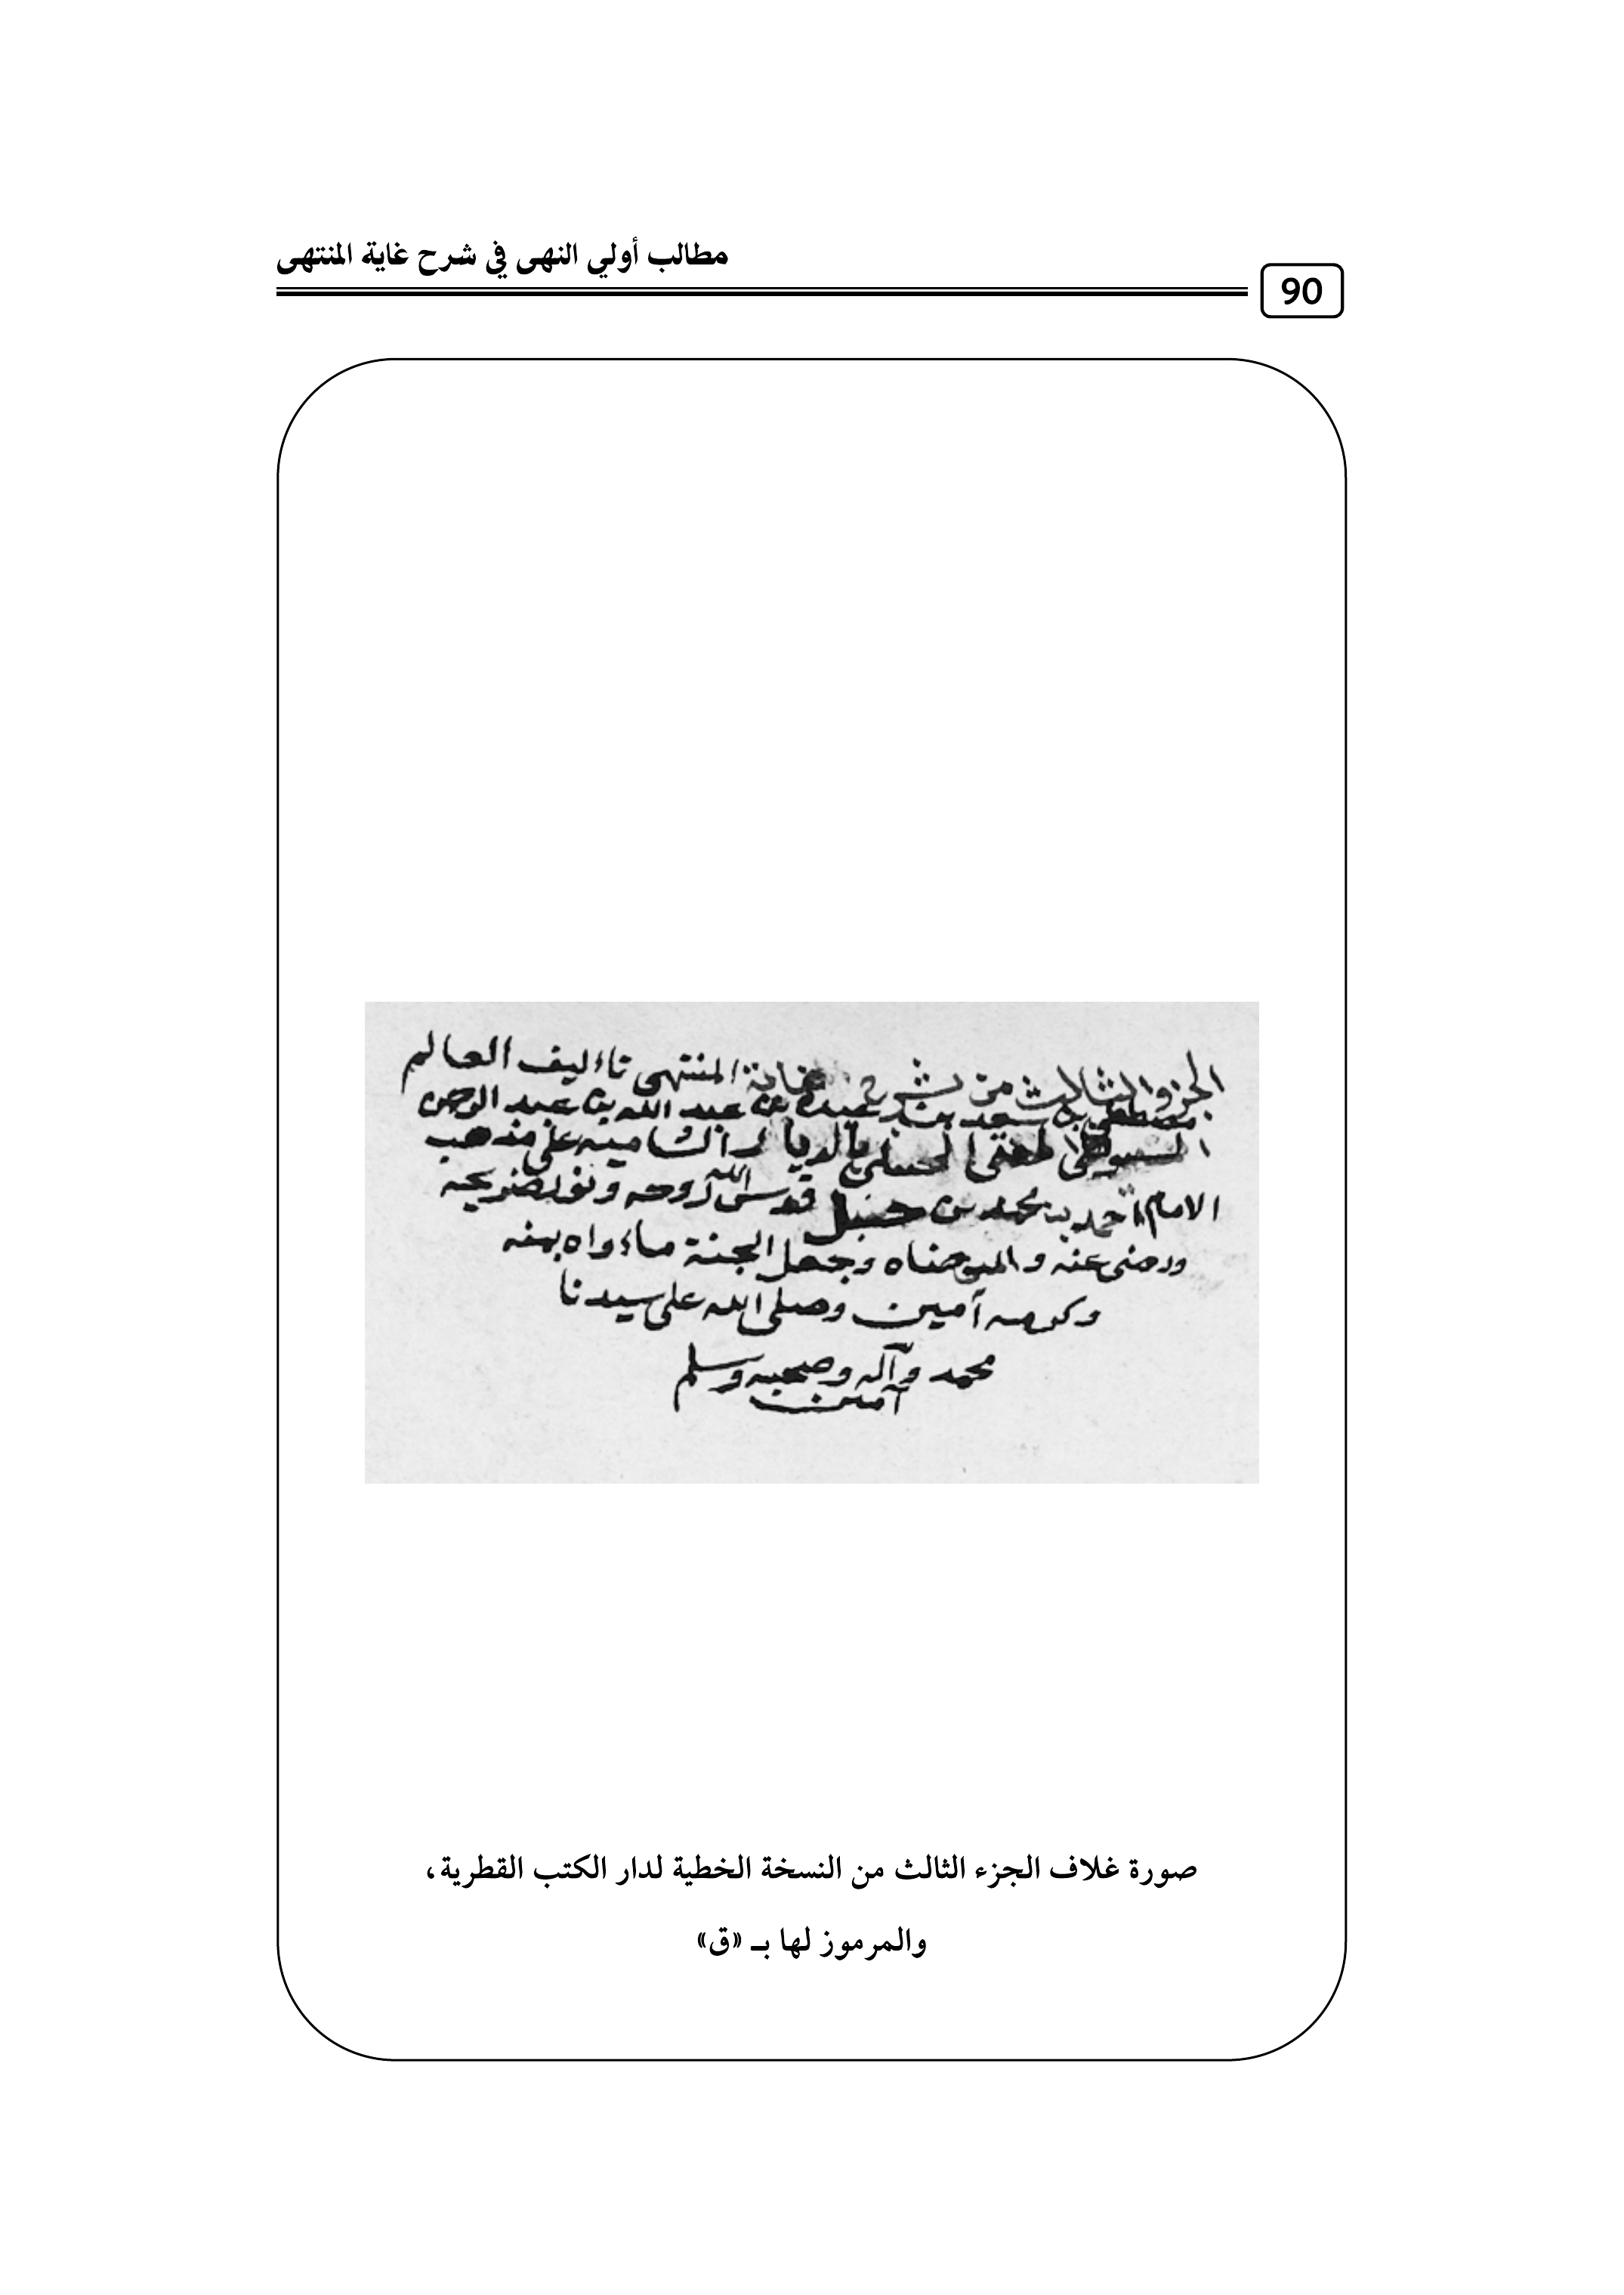 مطالب أولي النهى في شرح غاية المنتهى
90
الجزو الثالث من شرح غاية المنتهى تاءليف العالم
مصطفى بن سعد بن عبده بن عبد الله بن عبد الرحمن
السيوطي المفتي الحنبلي بالديار الشاميه على مذهب
الامام احمد بن محمد بن حنبل قدس الله روحه ونور ضريحه
ورضى عنه وارضاه وجعل الجنة ماءواه بمنه
وكرمه آمين وصلى الله على سيدنا
محمد وآله وصحبه وسلم
آمين
صورة غلاف الجزء الثالث من النسخة الخطية لدار الكتب القطرية،
والمرموز لها بـ «ق»